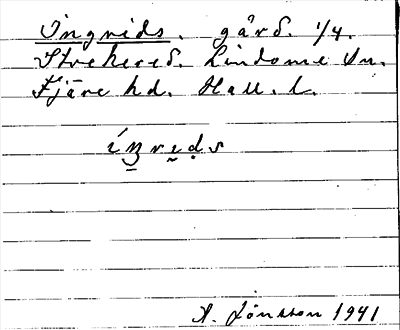 Ingrids. gård. 1/4.
Strekered. Lindome sn.
Fjäre hd. Hall. l.
íŋrịḍs
A. Jönsson 1941